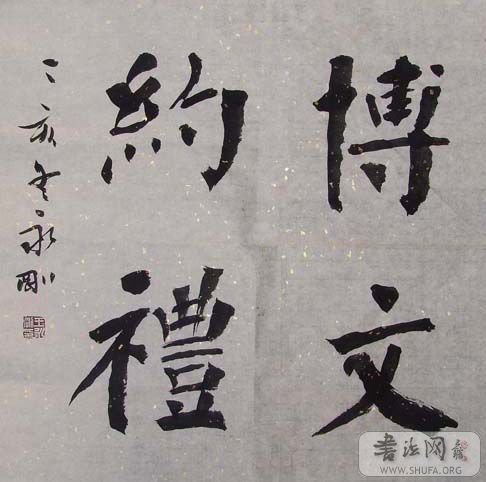 博文
約禮
丁亥冬永刚
书法网
WWW.SHUFA.ORG